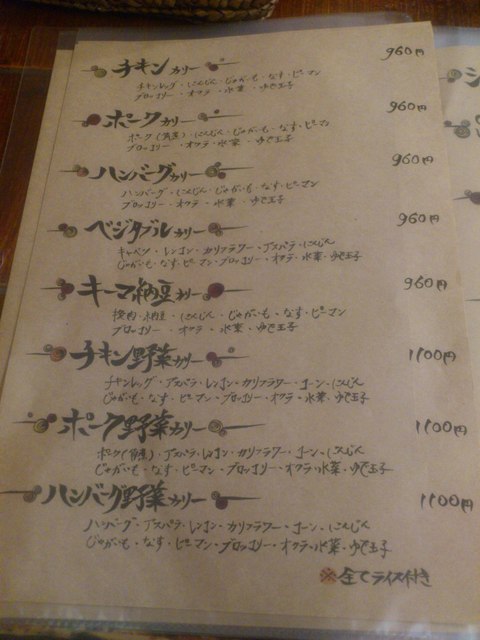 チキンカリー 960円
チキンレッグ・にんじん・じゃがいも・なす・ピーマン
ブロッコリー・オクラ・水菜・ゆで玉子
ポークカリー 960円
ポーク(角煮)・にんじん・じゃがいも・なす・ピーマン
ブロッコリー・オクラ・水菜・ゆで玉子
ハンバーグカリー 960円
ハンバーグ・にんじん・じゃがいも・なす・ピーマン
ブロッコリー・オクラ・水菜・ゆで玉子
ベジタブルカリー 960円
キャベツ・レンコン・カリフラワー・アスパラ・にんじん
じゃがいも・なす・ピーマン・ブロッコリー・オクラ・水菜・ゆで玉子
キーマ納豆カリー 960円
挽肉・納豆・にんじん・じゃがいも・なす・ピーマン
ブロッコリー・オクラ・水菜・ゆで玉子
チキン野菜カリー 1100円
チキンレッグ・アスパラ・レンコン・カリフラワー・コーン・にんじん
じゃがいも・なす・ピーマン・ブロッコリー・オクラ・水菜・ゆで玉子
ポーク野菜カリー 1100円
ポーク(角煮)・アスパラ・レンコン・カリフラワー・コーン・にんじん
じゃがいも・なす・ピーマン・ブロッコリー・オクラ・水菜・ゆで玉子
ハンバーグ野菜カリー 1100円
ハンバーグ・アスパラ・レンコン・カリフラワー・コーン・にんじん
じゃがいも・なす・ピーマン・ブロッコリー・オクラ・水菜・ゆで玉子
※全てライス付き